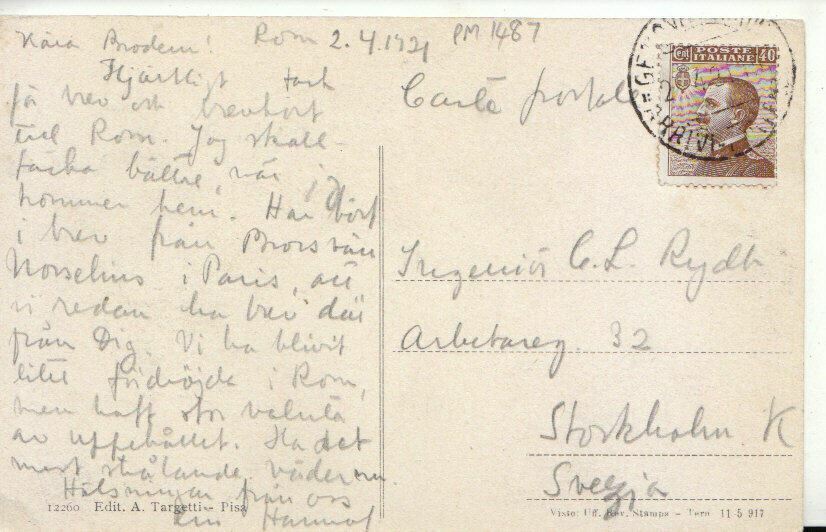 Kära Brodern! Rom 2.4.1921
PM 1487
Hjärtligt tack
få brev och brevkort
till Rom. Jag skall
tacka bättre, när jag
kommer hem. Har hört
i brev från Brors vän
Norselius i Paris, att
vi redan ha brev där
från Dig. Vi ha blivit
litet fördröjda i Rom,
men haft stor valuta
av uppehållet. Ha det
mest strålande väder nu.
Hälsningar från oss
din
12260 Edit. A. Targetti - Pisa
Carte postale
POSTE ITALIANE
Cent 40
ARRIVI
Ingeniör C. L. Rydh
Arbetareg. 32
Stockholm K
Svezia
Visto: Uff. Rev. Stampa - Tern 11-5 917